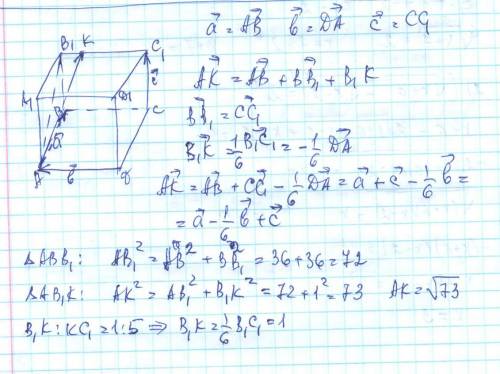 a⃗ = AB⃗ b⃗ = DA⃗ c⃗ = CC₁⃗
B₁ K C₁
A₁ D₁ c⃗
B C
a⃗
A b⃗ D
AK⃗ = AB⃗ + BB₁⃗ + B₁K⃗
BB₁⃗ = CC₁⃗
B₁K⃗ = 1/6 B₁C₁⃗ = -1/6 DA⃗
AK⃗ = AB⃗ + CC₁⃗ - 1/6 DA⃗ = a⃗ + c⃗ - 1/6 b⃗ =
= a⃗ - 1/6 b⃗ + c⃗
ΔABB₁: AB₁² = AB² + BB₁² = 36+36=72
ΔAB₁K: AK² = AB₁² + B₁K² = 72 + 1² = 73 AK = √73
B₁K : KC₁ = 1:5 ⇒ B₁K = 1/6 B₁C₁ = 1